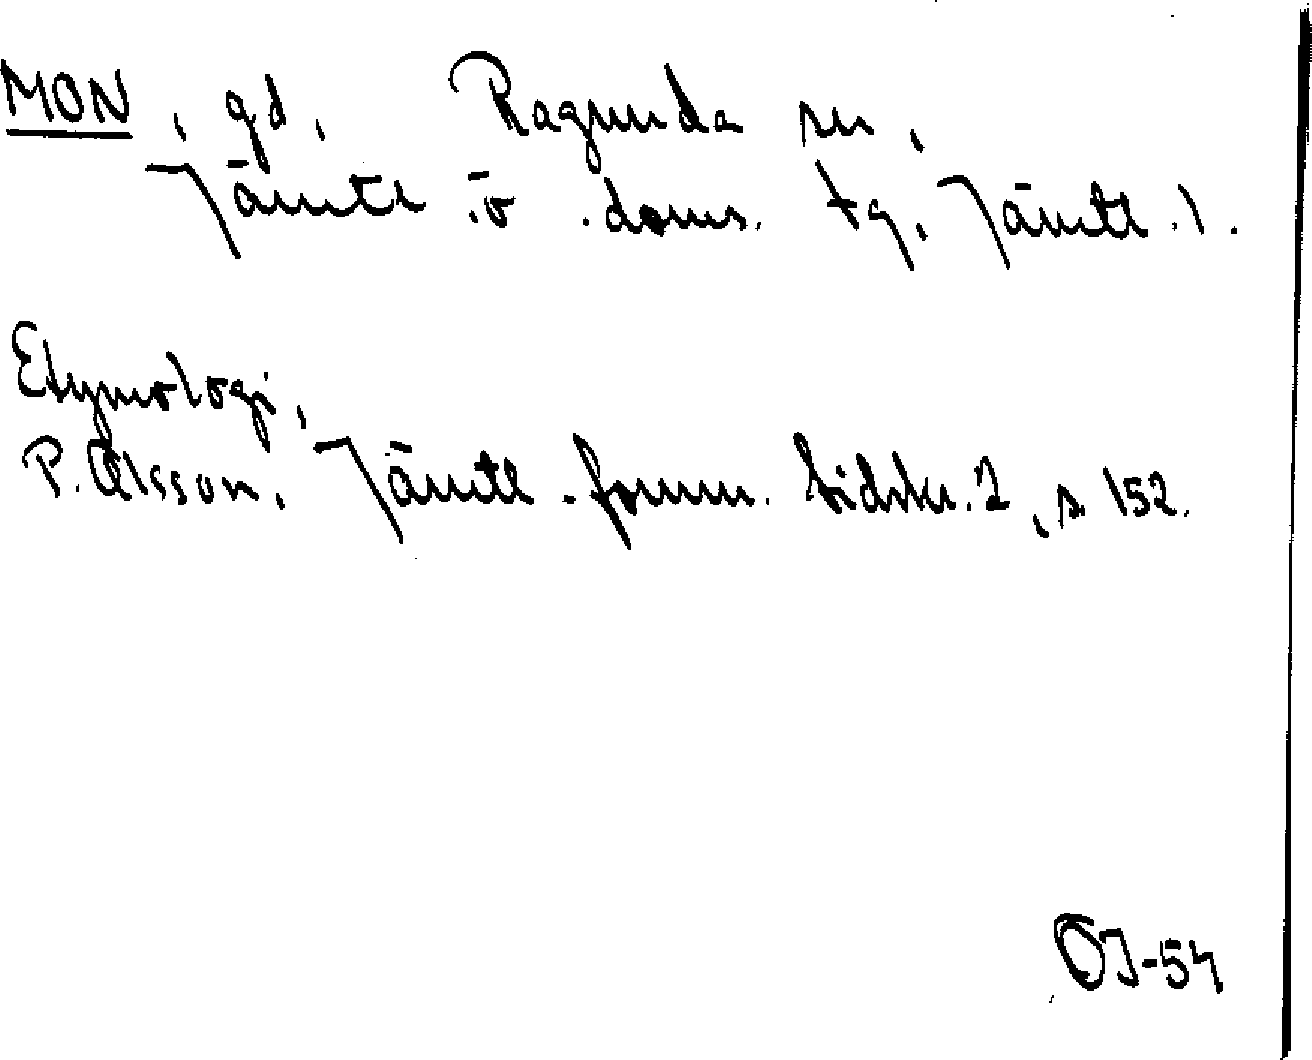 MON, gd, Ragunda sn,
Jämtl ö. doms. tg, Jämtl. l.
Etymologi,
P. Olsson, Jämtl. fornm. tidskr. 2, s. 152.
OJ-54